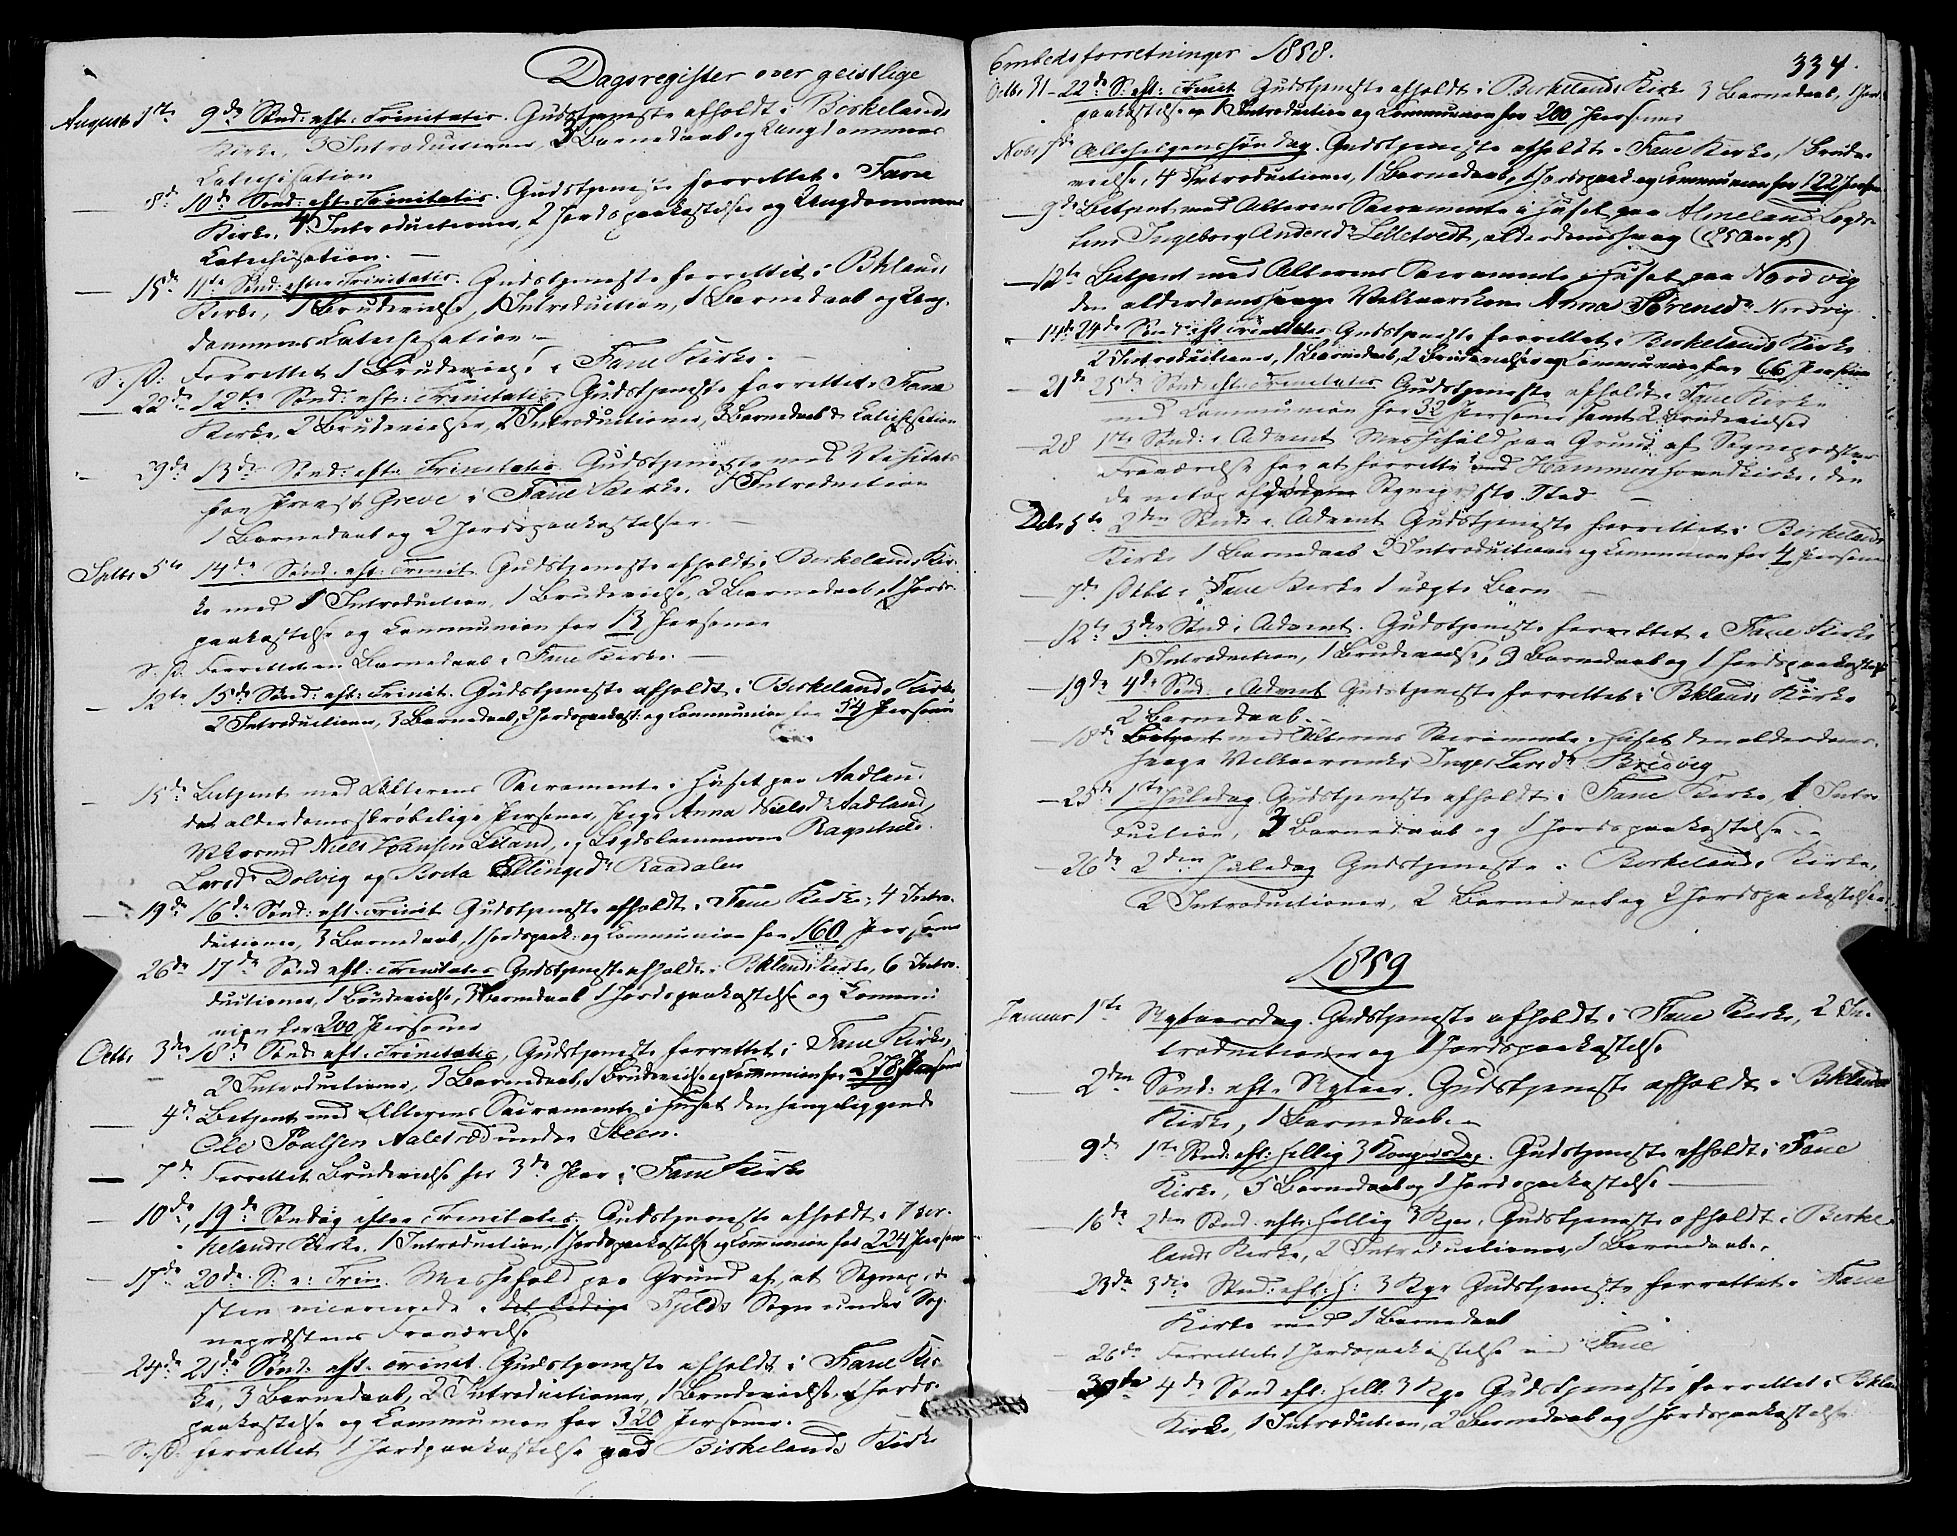 Dagsregister over geistlige
August 1ste 9de Sønd: eft: Trinitatis. Gudstjeneste afholdt i Birkelands
Kirke, 5 Introductioner, 3 Barnedaab og Ungdommens
Catechisation
— 8de 10de Sønd: eft: Trinitatis. Gudstjeneste forrettet i Fane
Kirke, 4 Introductioner, 2 Jordspaakastelser og Ungdommens
Catechisation. —
— 15de 11te Sønd: efter Trinitatis. Gudstjeneste forrettet i Bklands
Kirke, 1 Brudevielse, 1 Introduction, 1 Barnedaab og Ung-
dommens Catechisation —
S: D: Forrettet 1 Brudevielse i Fane Kirke. —
— 22de 12te Sønd: eft: Trinitatis. Gudstjeneste forrettet i Fane
Kirke, 2 Brudevielser, 2 Introductioner, 3 Barnedaab & Catechisation
— 29de 13de Sønd: eft: Trinitatis. Gudstjeneste med Visitats
for Provst Greve i Fane Kirke. 1 Introduction
1 Barnedaab og 2 Jordspaakastelser. —
Septbr 5te 14de Sønd: eft: Trinit. Gudstjeneste afholdt i Birkelands Kir-
ke med 1 Introduction, 1 Brudevielse, 2 Barnedaab, 1 Jords-
paakastelse og Communion for 13 Personer
S. D. Forrettet en Barnedaab i Fane Kirke. —
— 12te 15de Sønd: eft: Trinit. Gudstjeneste afholdt i Birkelands Kirke
2 Introductioner, 3 Barnedaab, 2 Jordspaakast: og Communion for 54 Personer
— 15de Betjent med Alterens Sacramente i Huset paa Aadland
de alderdomsskrøbelige Personer, Pige Anna Nielsdr Aadland,
Niels Hansen Liland, og Lægdslemmerne Ragnhilde
Larsdr Dolvig og Brita Ellingsdr Raadalen
— 19de 16de Sønd: eft: Trinit. Gudstjeneste afholdt i Fane Kirke, 4 Intro-
ductioner, 3 Barnedaab, 1 Jordspaak: og Communion for 160 Personer
— 26de 17de Sønd eft: Trinitatis Gudstjeneste afholdt i Bklands Kirke, 6 Intro-
ductioner, 1 Brudevielse, 3 Barnedaab 1 Jordspaakastelse og Commu-
nion for 200 Personer
Octbr 3die 18de Sønd: eft: Trinitatis, Gudstjeneste forrettet i Fane Kirke,
2 Introductioner, 3 Barnedaab, 1 Brudevielse og Communion for 278 Personer
— 4de Betjent med Alterens Sacramente i Huset den sengeliggende
Ole Poulsen Aaletræd under Steen.
— 7de Forrettet Brudevielse for 3de Par i Fane Kirke
— 10de, 19de Søndag efter Trinitatis. Gudstjeneste afholdt i Bir-
kelands Kirke, 1 Introduction, 1 Jordspaakastelse og Communion for 224 Personer
— 17de 20de S: e: Trin. Messefald paa Grund af, at Sognepræ-
sten vicarierede i det ledige Fjelds Sogn under Sog-
nepræstens Fraværelse
— 24de 21de Sønd: eft: Trinit. Gudstjeneste afholdt i Fane Kir-
ke, 3 Barnedaab, 2 Introductioner, 1 Brudevielse, 1 Jords-
paakastelse og Communion for 320 Personer. —
— S: D: forrettet 1 Jordpaakastelse ved Birkelands Kirke
Embedsforretninger 1858. 334.
Octbr 31 – 22de S: eft: Trinit Gudstjeneste afholdt i Birkelands Kirke 3 Barnedaab, 1 Jord-
paakastelse 1 Introduction og Communion for 200 Personer
Novbr 7de Allehelgenssøndag. Gudstjeneste afholdt i Fane Kirke, 1 Brude-
vielse, 4 Introductioner, 1 Barnedaab, 1 Jordspaak og Communion for 122 Personer
— 9de Betjent med Alterens Sacramente i Huset paa Almeland Lægds-
lem Ingeborg Andersdr Lilletvedt, alderdomssvag (85 Aar gl)
— 12te Betjent med Alterens Sacramente i Huset paa Nordvig
den alderdomssvage Anna Sørensdr Nordvig
— 14de 24de Sønd: eft Trinitatis Gudstjeneste forrettet i Birkelands Kirke
2 Introductioner, 1 Barnedaab, 2 Brudevielser og Communion for 66 Personer
— 21de 25de Sønd: eft: Trinitatis Gudstjeneste afholdt i Fane Kirke
med Communion for 32 Personer samt 2 Brudevielser
— 28 1ste Sønd: i Advent Messefald paa Grund af Sognepræstens
Fraværelse for at forrette i Hammers Hovedkirke i den
netop afdøde Sognepræsts Sted —
Decbr 5te 2den Sønd: i Advent Gudstjeneste forrettet i Birkelands
Kirke 1 Barnedaab 2 Introductioner og Communion for 4 Personer
— 7de Døbt i Fane Kirke 1 uægte Barn —
— 12te 3die Sønd: i Advent. Gudstjeneste forrettet i Fane Kirke
1 Introduction, 1 Brudevielse, 2 Barnedaab og 1 Jordspaakastelse
— 19de 4de Sønd. i Advent Gudstjeneste forrettet i Bklands Kirke
2 Barnedaab. —
— 18de Betjent med Alterens Sacramente i Huset den alderdoms-
svage Larsdr Bredvig
— 25de 1ste Juledag. Gudstjeneste afholdt i Fane Kirke, 1 Intro-
duction, 3 Barnedaab og 1 Jordspaakastelse. —
— 26de 2den Juledag Gudstjeneste i Birkelands Kirke,
2 Introductioner, 2 Barnedaab og 2 Jordspaakastelser.
1859
Januar 1ste Nytaarsdag. Gudstjeneste afholdt i Fane Kirke, 2 In-
troductioner og 1 Jordspaakastelse
— 2den Sønd: eft: Nytaar. Gudstjeneste afholdt i Bklands
Kirke, 1 Barnedaab. —
9de 1ste Sønd: eft: hellig 3 Kongersdag. Gudstjeneste afholdt i Fane
Kirke, 5 Barnedaab og 1 Jordspaakastelse —
— 16de 2den Sønd. eft: hellig 3 Kger. Gudstjeneste afholdt i Birke-
lands Kirke, 2 Introductioner, 1 Barnedaab.
— 23de 3die Sønd: eft: h: 3 Kgr Gudstjeneste forrettet i Fane
Kirke med 1 Barnedaab
— 26de Forrettet 1 Jordspaakastelse ved Fane
— 30de 4de Sønd eft: hell: 3 Kgr Gudstjeneste forrettet i Bklands
Kirke, 1 Introduction, 2 Barnedaab og 1 Jordspaakastelse